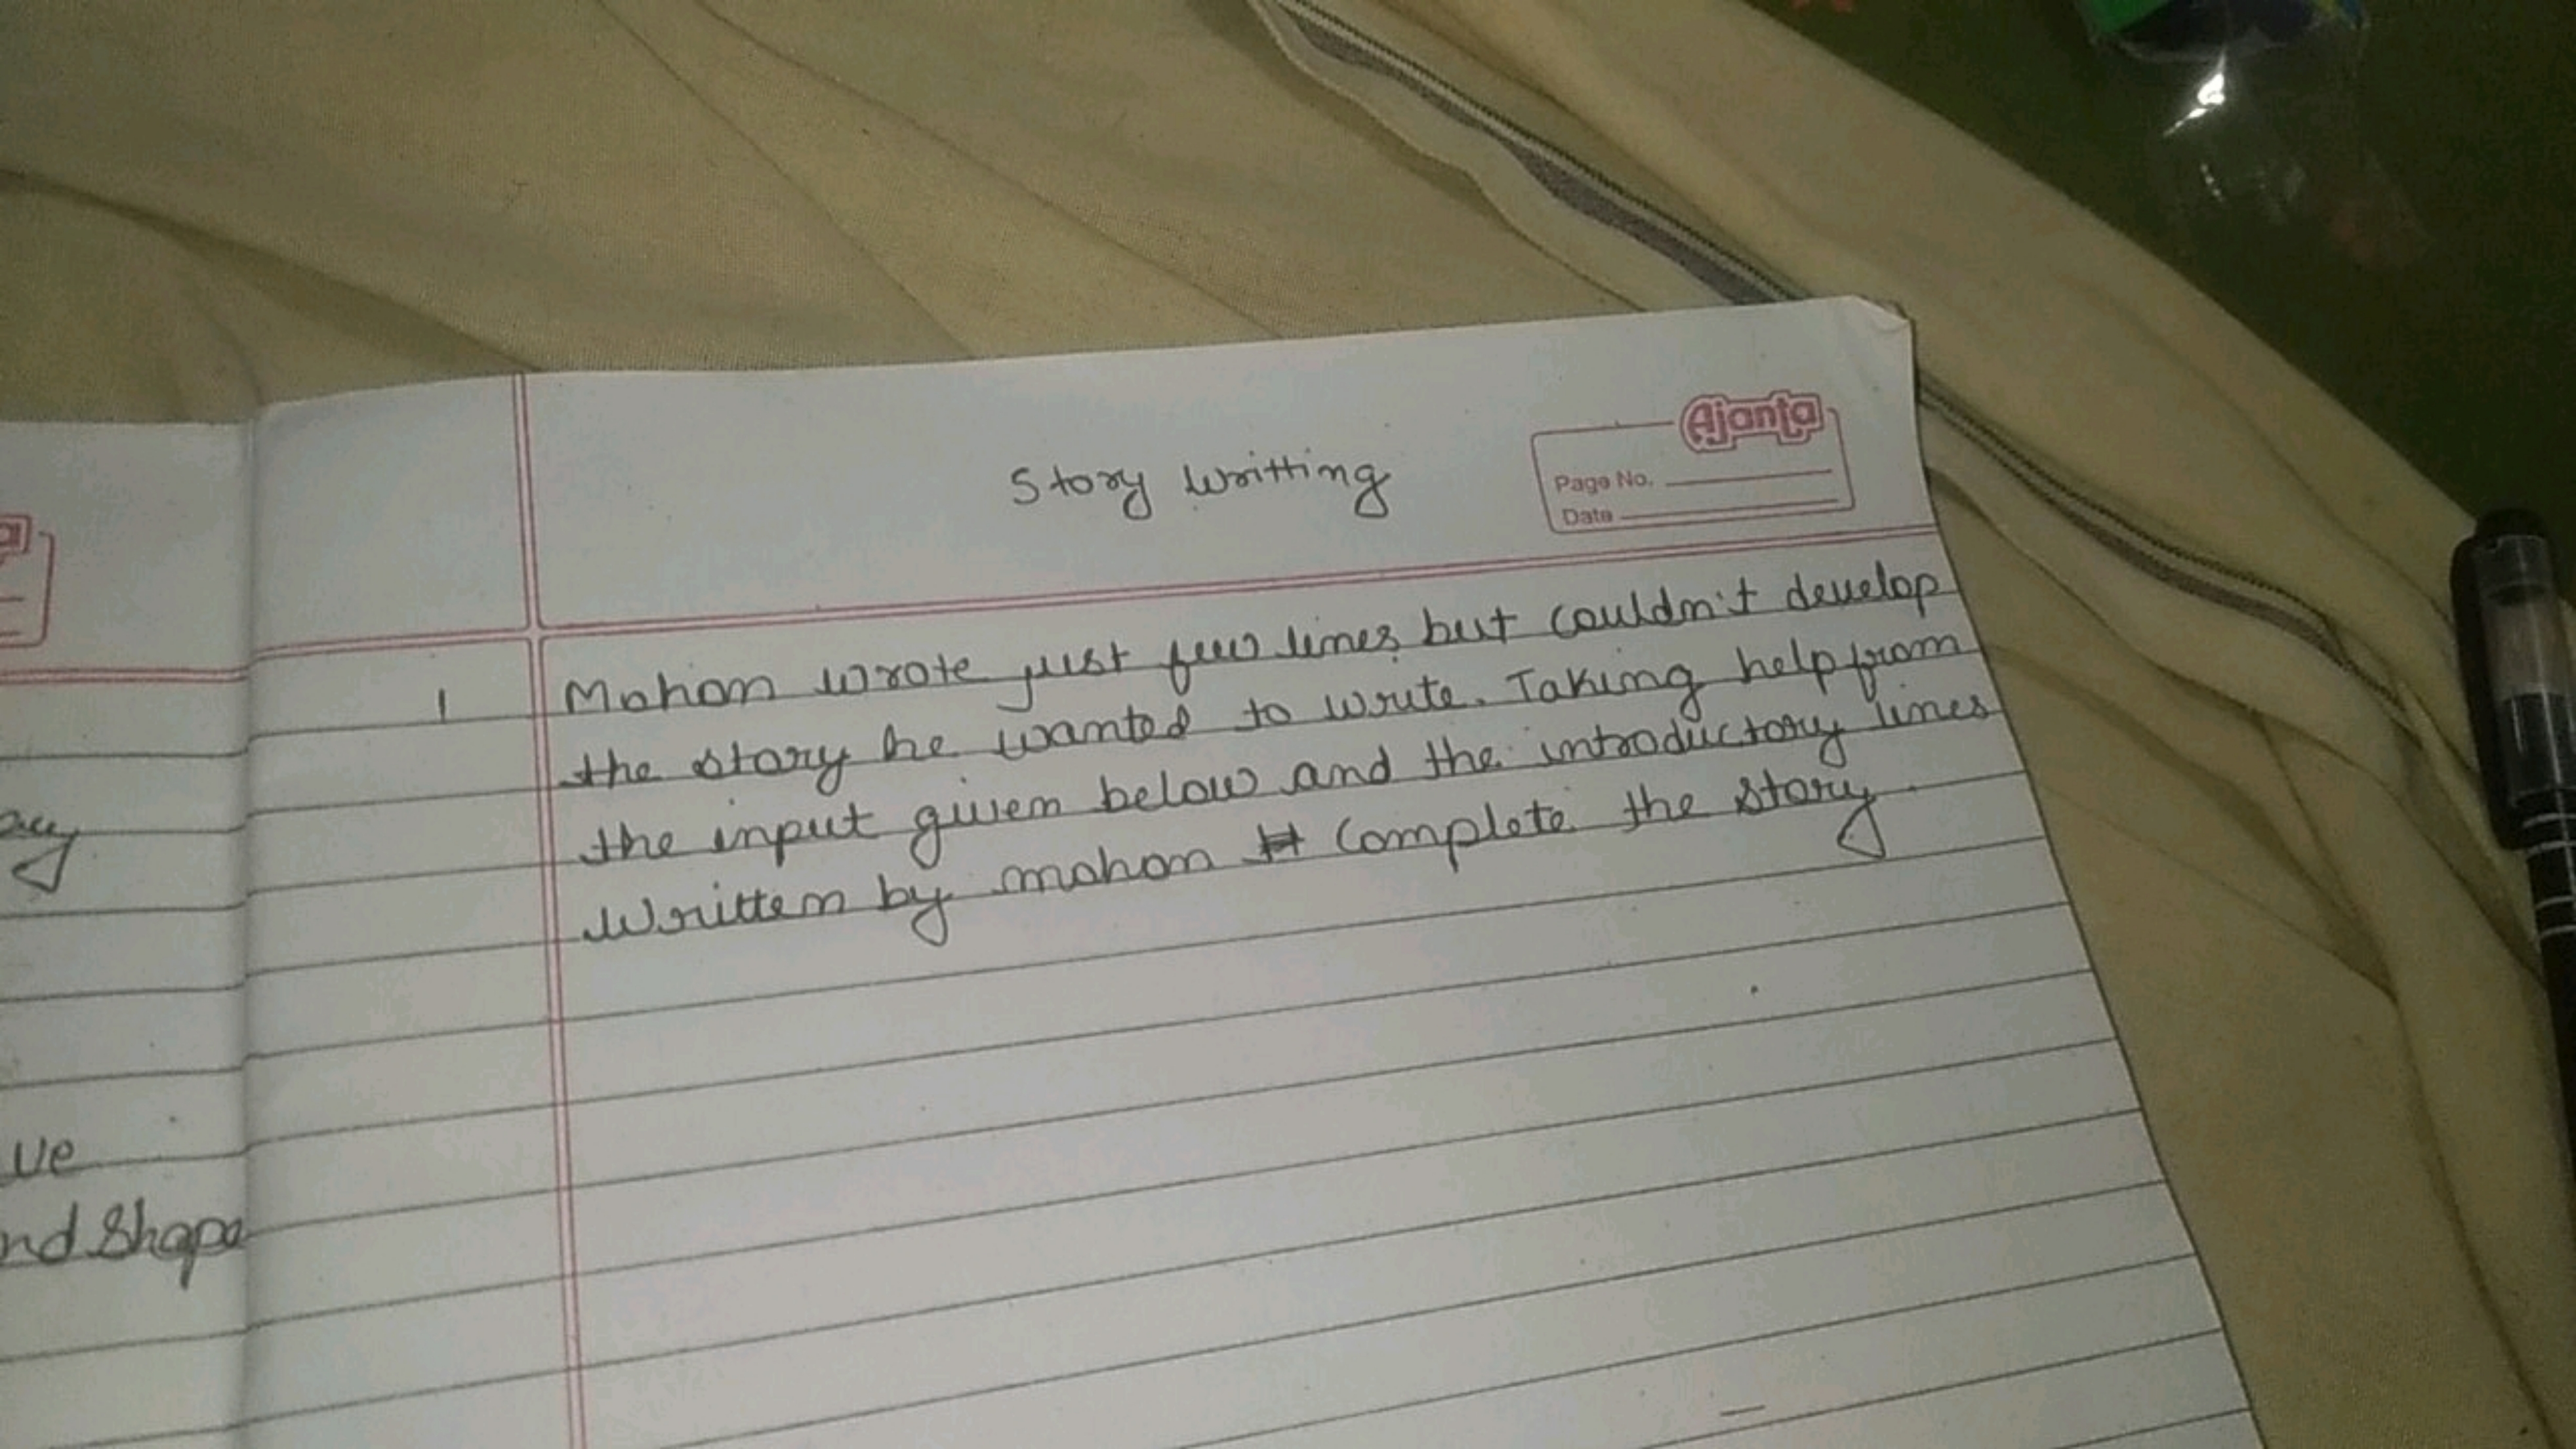 Ajanta
Page No.
Date
Story Writting
1 Mohan wrote just few lines but couldn't develop
the story he wanted to write. Taking help from
the input given below and the introductory lines
written by mohan complete the story.
ve
nd Shape